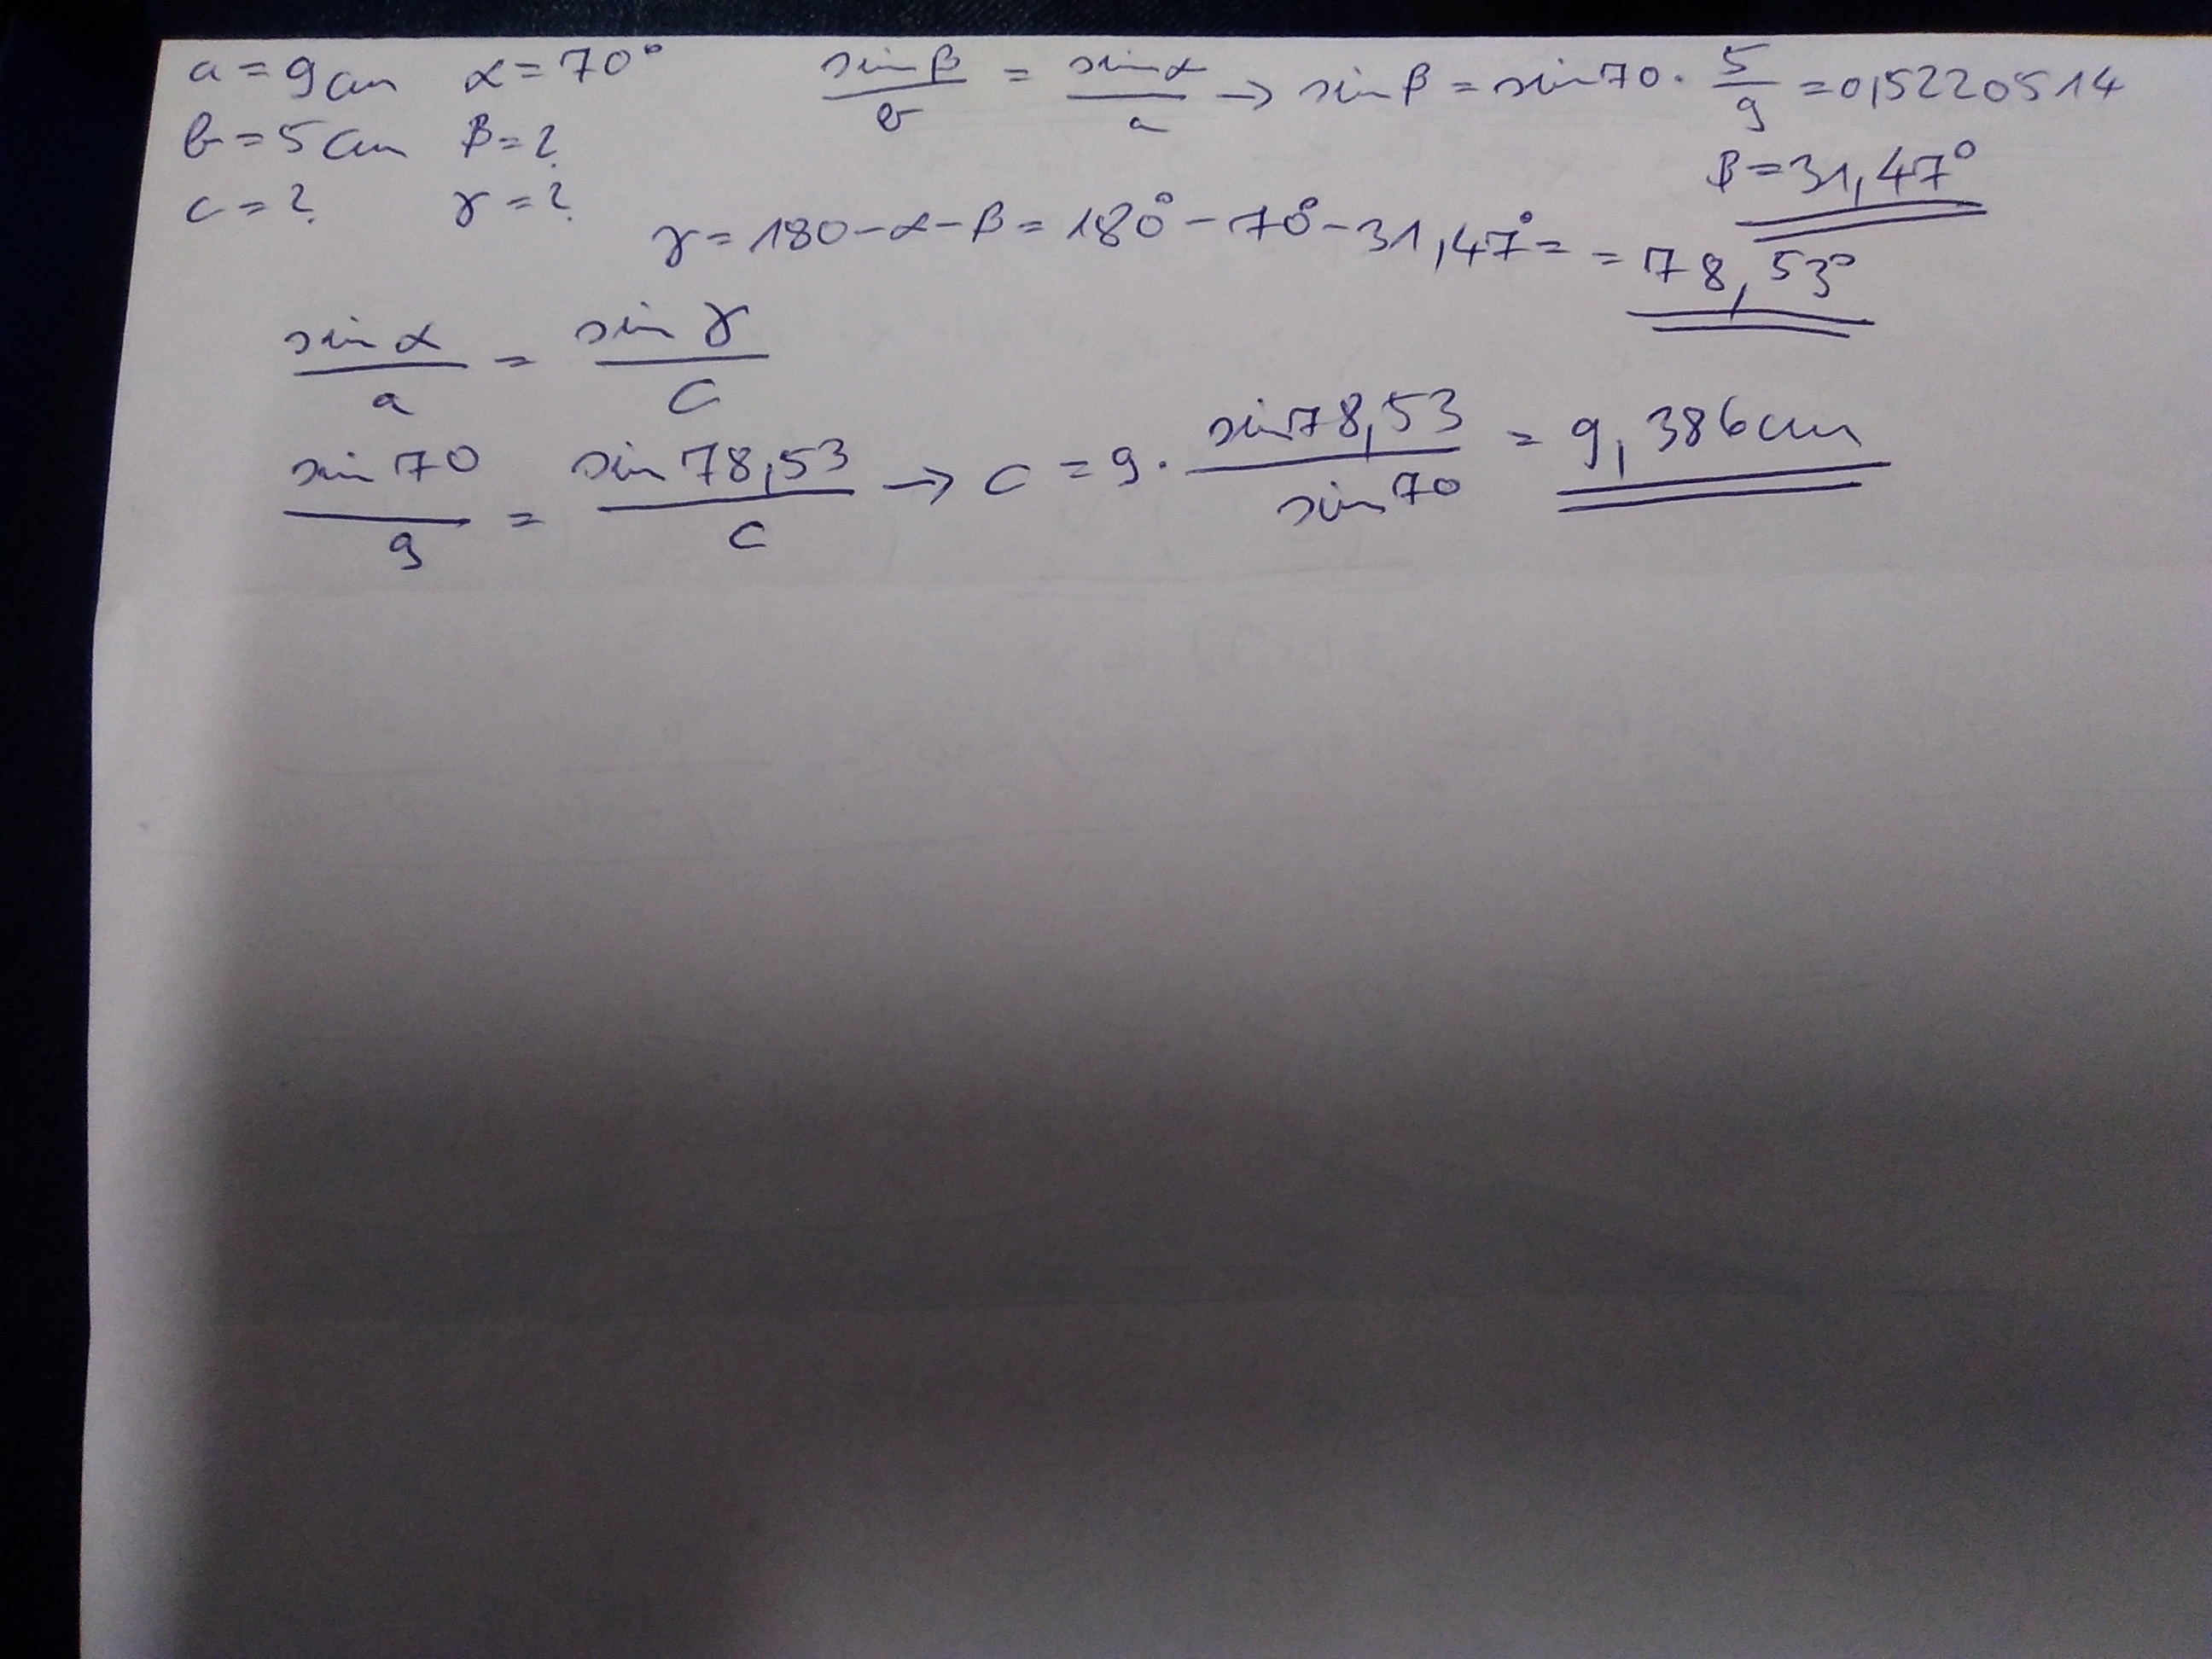 a = 9cm α = 70° sinβ/b = sinα/a → sinβ = sin70 · 5/9 = 0,5220514
b = 5cm β = ? β = 31,47°
c = ? γ = ? γ = 180 - α - β = 180° - 70° - 31,47° = = 78,53°
sinα/a = sinγ/c
sin70/9 = sin78,53/c → c = 9 · sin78,53/sin70 = 9,386cm